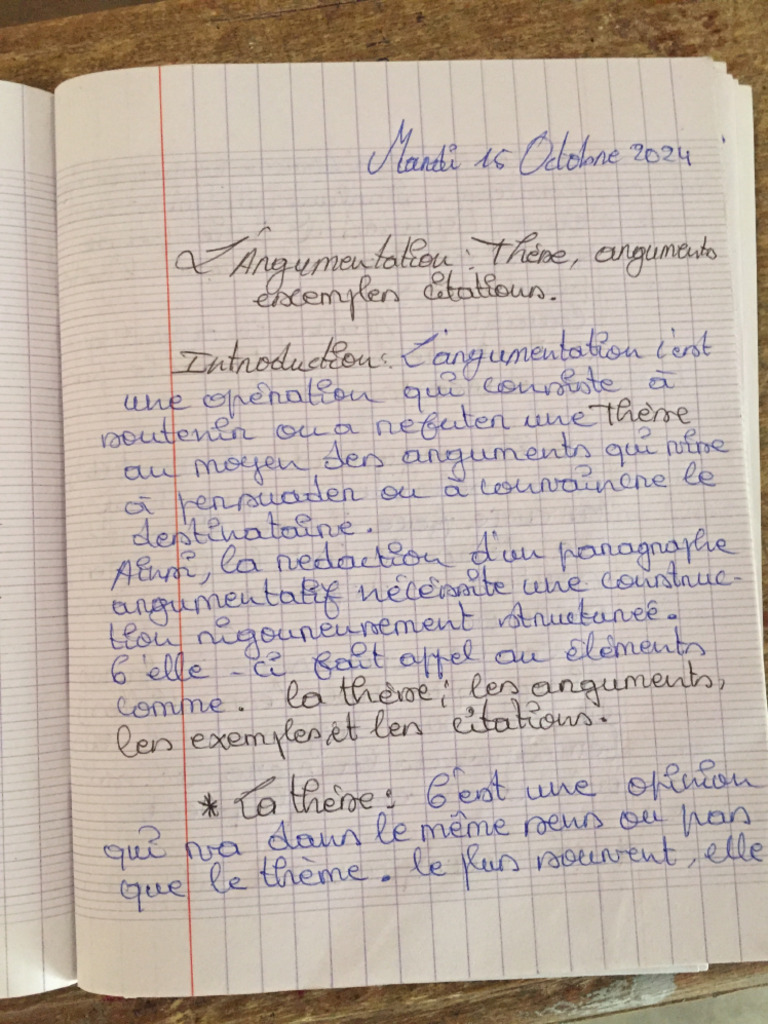 Mardi 15 Octobre 2024
L'Argumentation : Thèse, arguments
exemples citations.
Introduction : L'argumentation c'est
une opération qui consiste à
soutenir ou a refuter une Thèse
au moyen des arguments qui vise
à persuader ou à convaincre le
destinataire.
Ainsi, la redaction d'un paragraphe
argumentatif nécéssite une construc-
tion rigoureusement structurée.
C'elle-ci fait appel au éléments
comme. la thèse ; les arguments,
les exemples et les citations.
* La thèse : C'est une opinion
qui va dans le même sens ou pas
que le thème. le plus souvent, elle